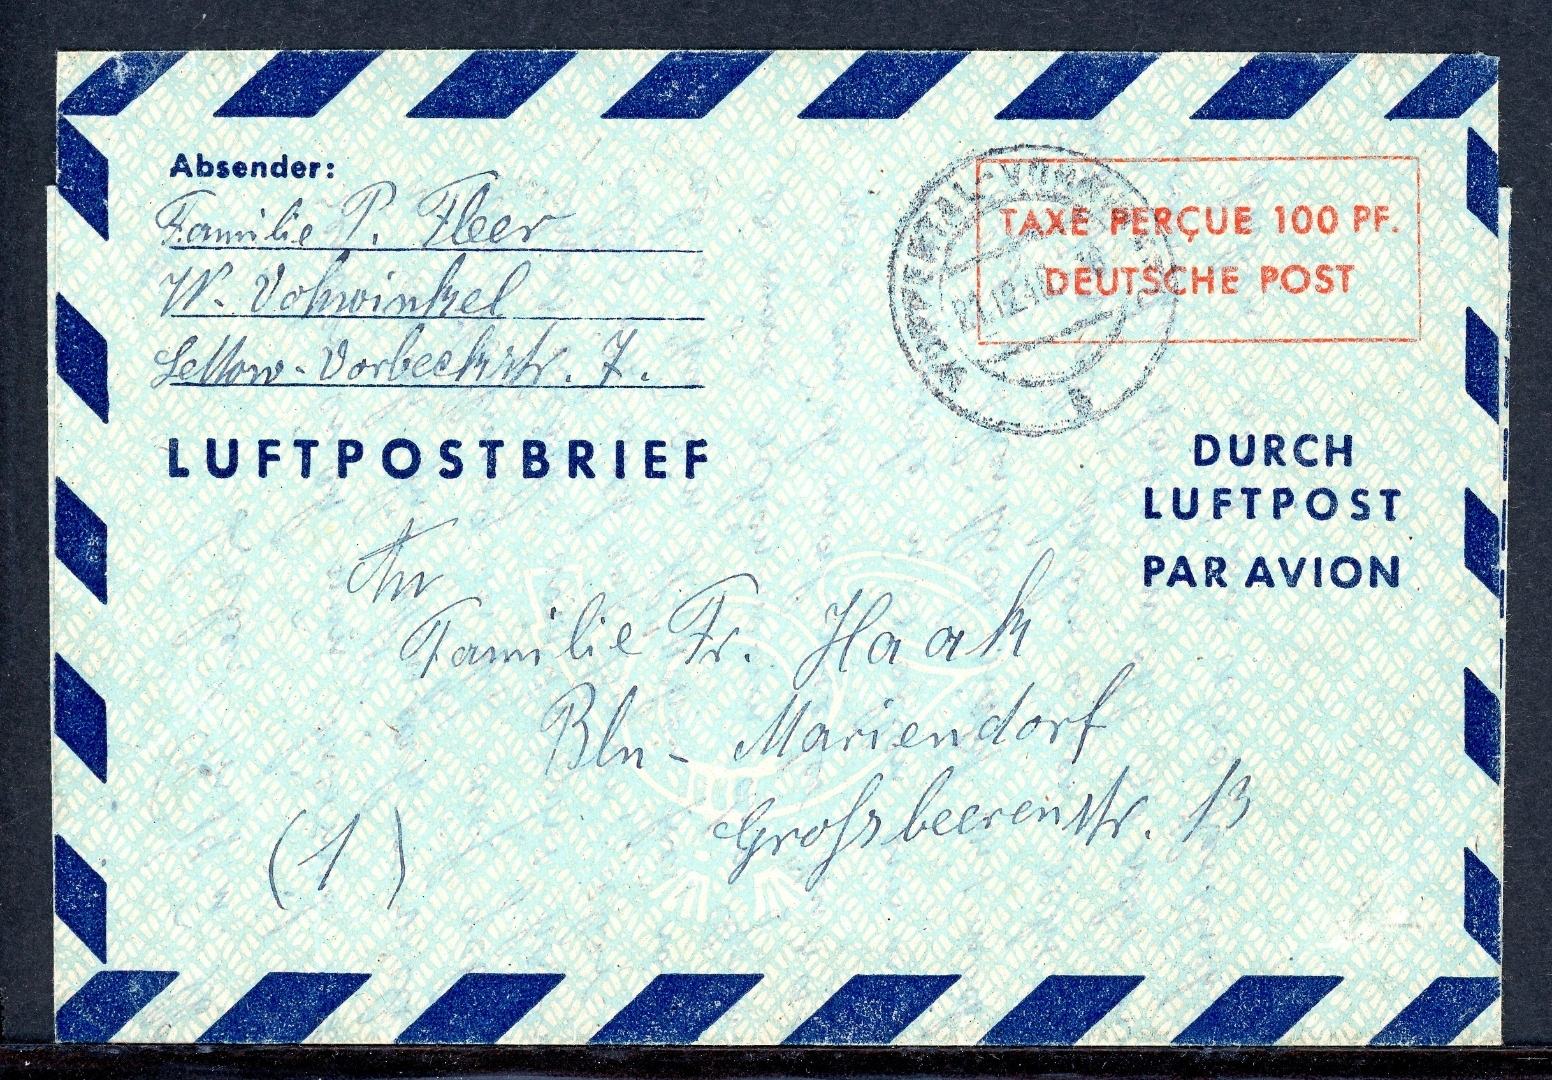 Absender:
Familie P. Fleer
W.-Vohwinkel
Lettow-Vorbeckstr. 7.
LUFTPOSTBRIEF
TAXE PERÇUE 100 PF.
DEUTSCHE POST
WUPPERTAL-VOHWINKEL
21.12.48
DURCH
LUFTPOST
PAR AVION
An
Familie Fr. Haak
Bln-Mariendorf
Großbeerenstr. 13
(1)